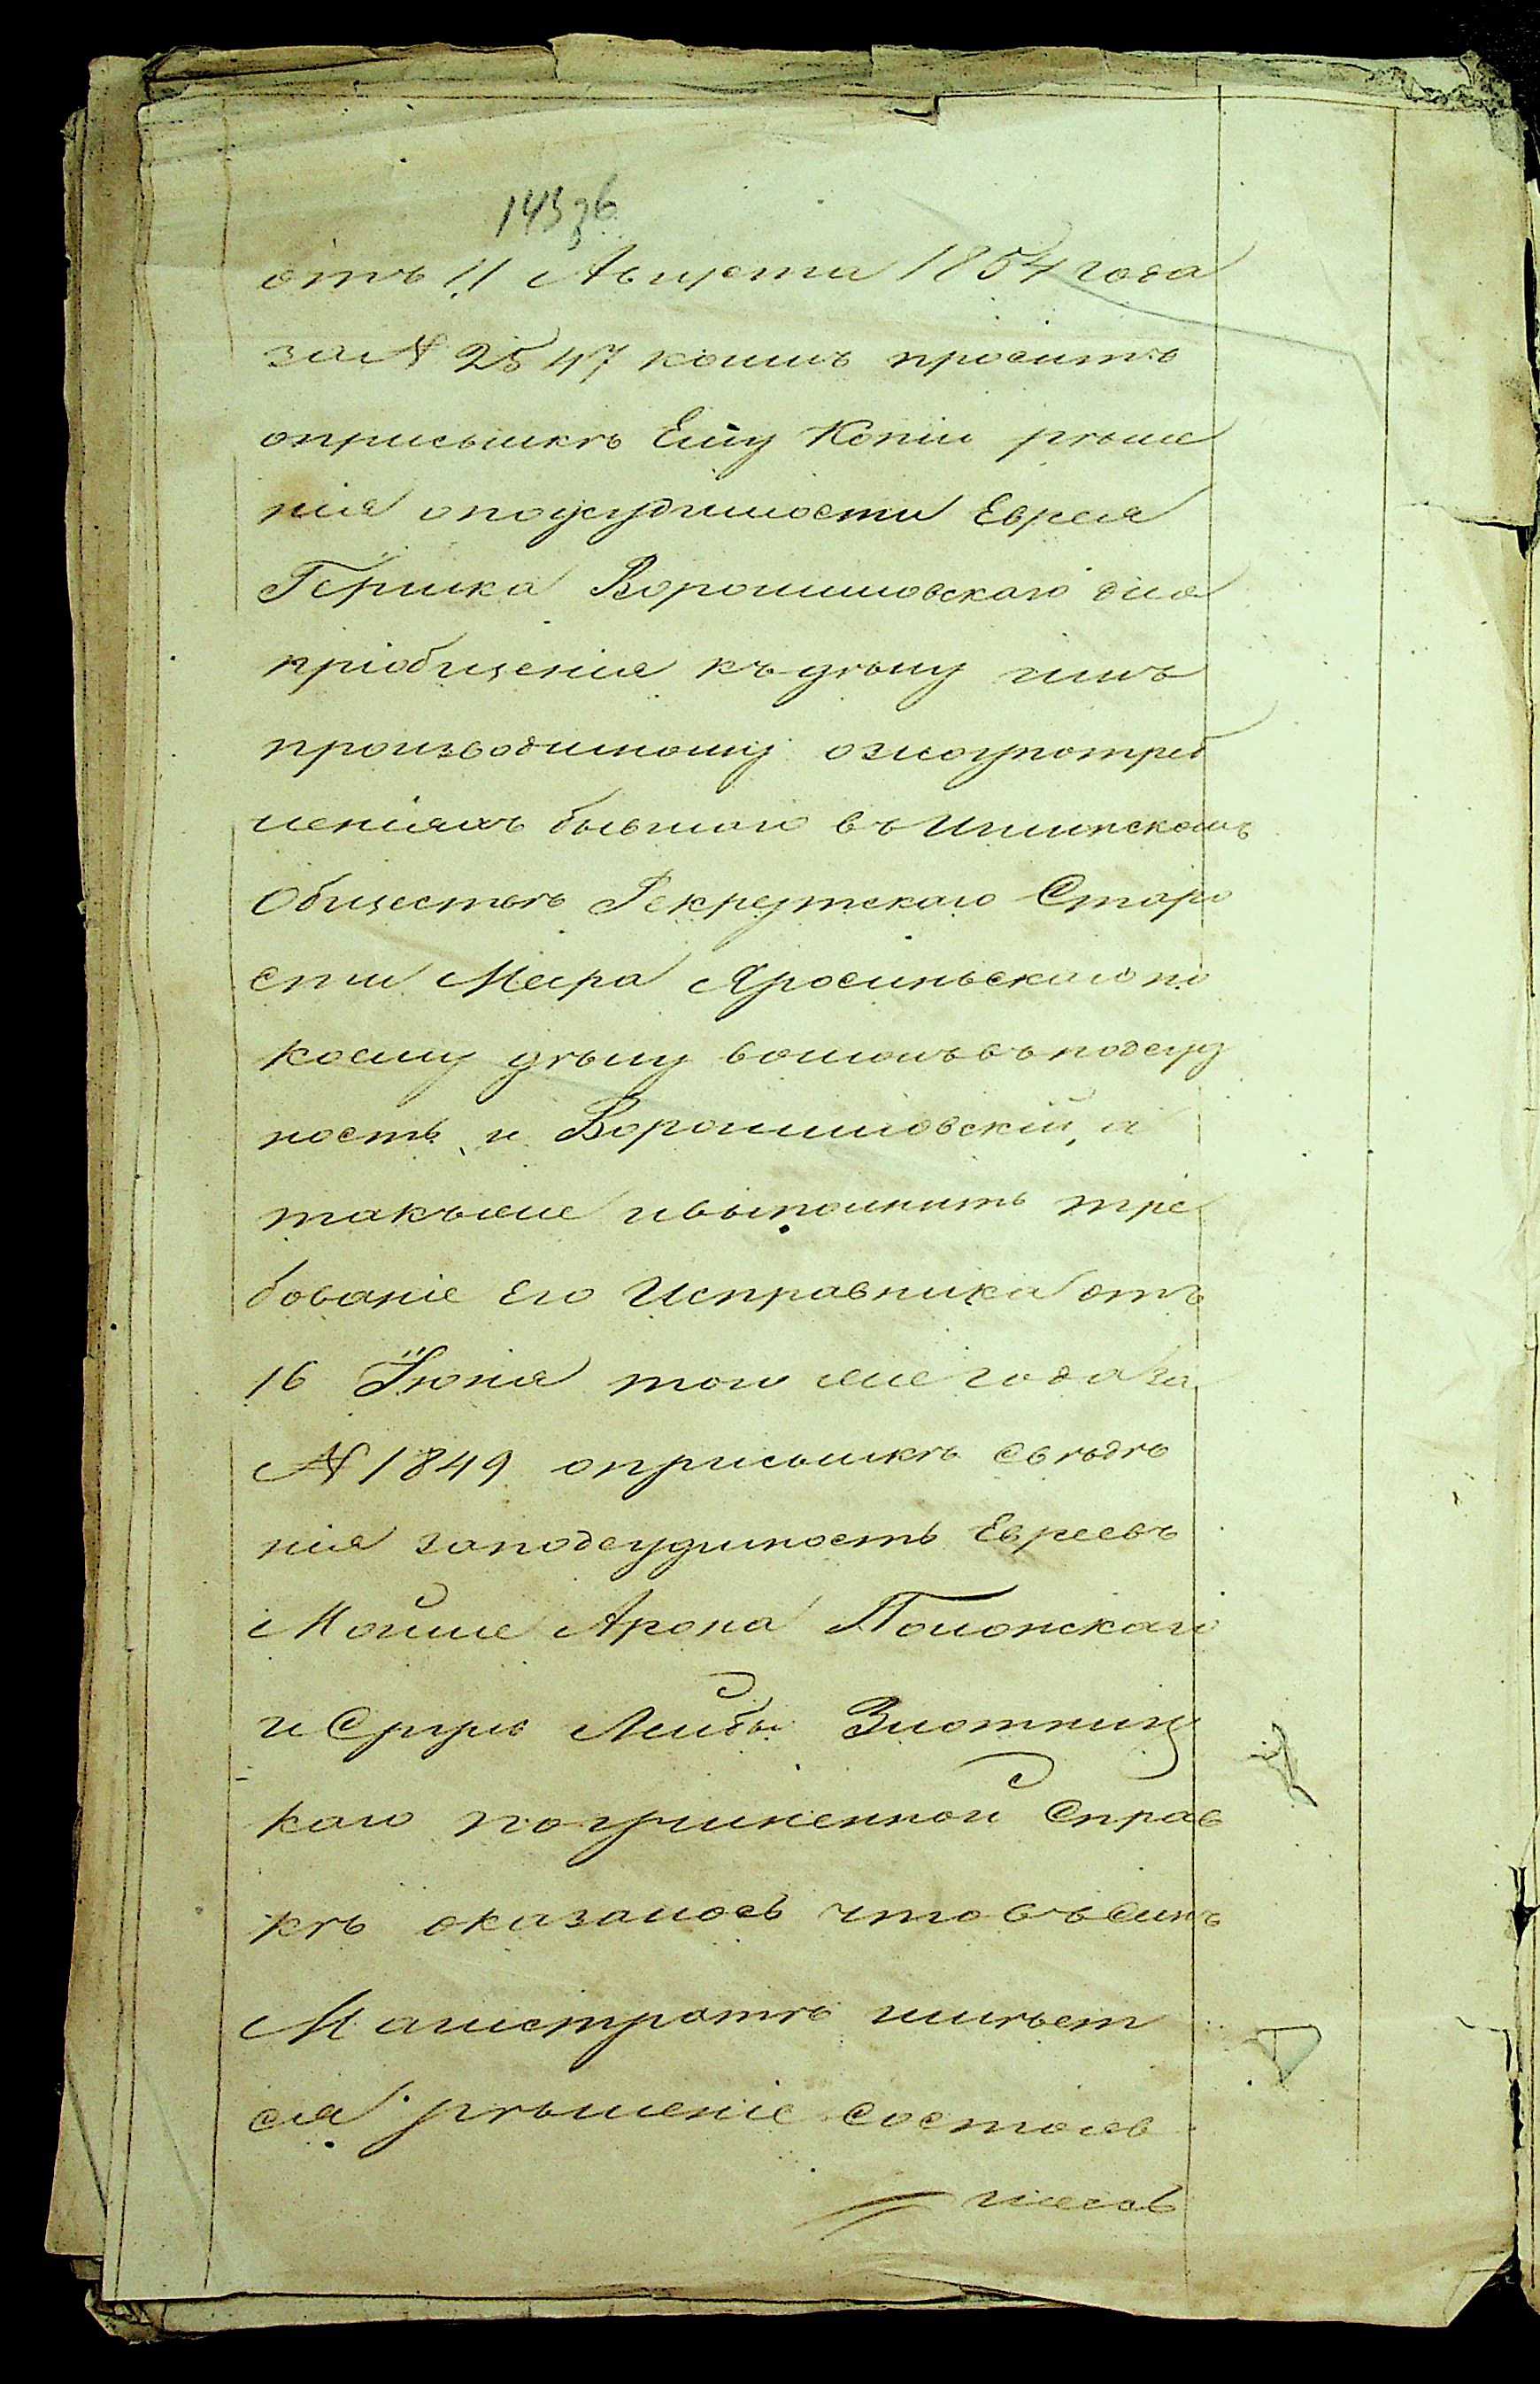 143зв
отъ 11 Августа 1854 года
за № 2547 коимъ проситъ
оприсылкѣ Ему Копіи рѣше
нія оподсудимости Еврея
Гершка Ворошиловскаго для
пріобщенія къ дѣлу имъ
производимому озлоупотреб
леніяхъ бывшаго въ Илинскомъ
Обществѣ Рекрутскаго Старо
сты Меера Яросиньскаго по
коему дѣлу вошолъ въ подсуд
ность и Ворошиловскій, а
такъже ивыполнить тре
бованіе Его Исправника отъ
16 Іюня того же года за
№ 1849 оприсылкѣ свѣдѣ
нія заподсудимость Евреевъ
Мошке Арона Полонскаго
и Сруля Лейбы Злотниц
каго поучиненной Справ
кѣ оказалось что въ Симъ
Магистратѣ имѣет
ся рѣшеніе состояв
шееся